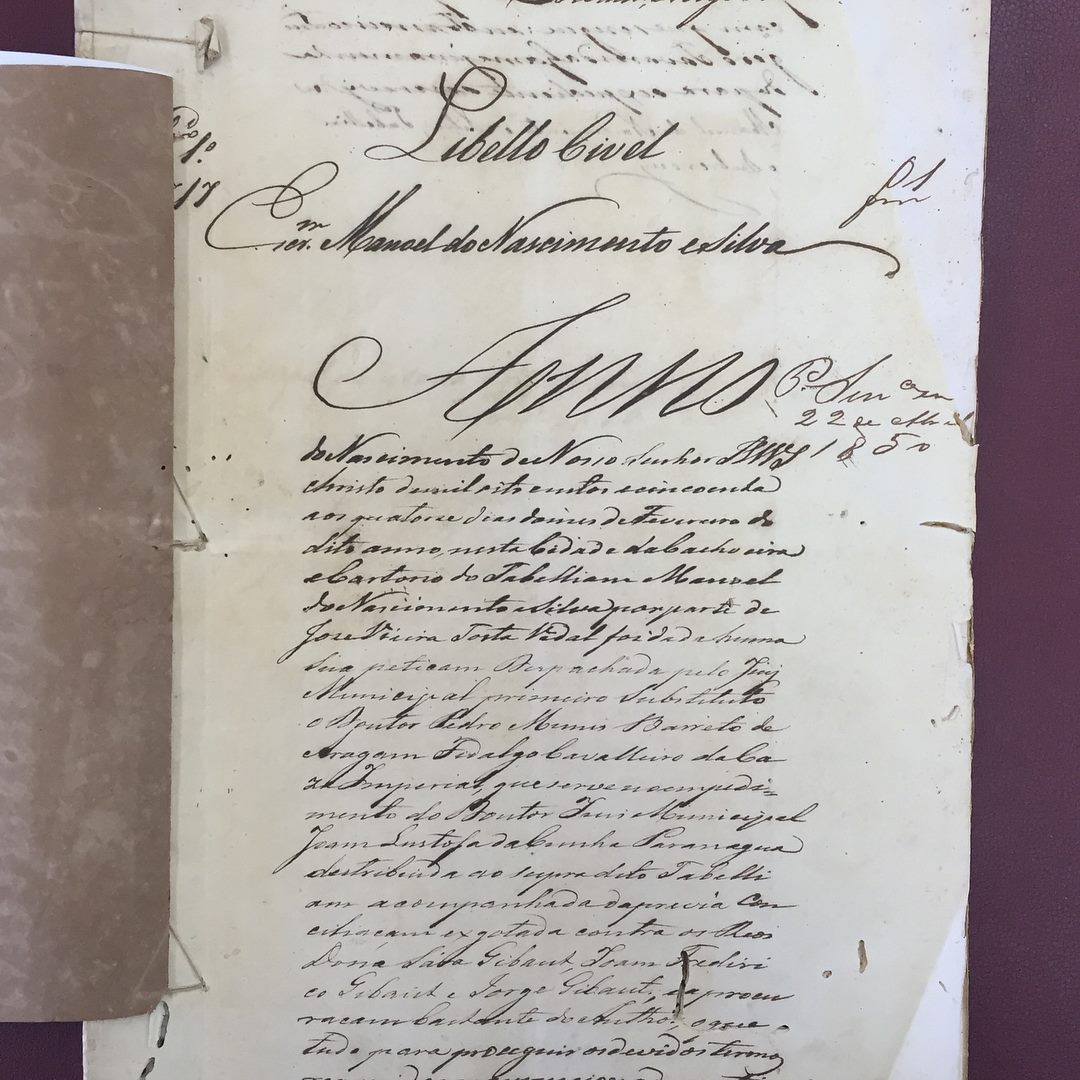 Libello Civel
1º
717
fm 1
Escr.m Manoel do Nascimento e Silva
Anno
P. Sen.ça em
22 de Abril
1850
do Nascimento de Nosso Senhor
Christo de mil oito centos e cincoenta
aos quatorse dias do mes de Fevereiro do
dito anno, nesta Cidade da Cachoeira
e Cartorio do Tabelliam Manoel
do Nascimento e Silva por parte de
Jose Vieira Tosta Vidal foi dada huma
sua peticam Despachada pelo Juis
Municipal primeiro Substituto
o Doutor Pedro Munis Barreto de
Aragam Fidalgo Cavalleiro da Ca
za Imperial, que serve no empedi=
mento do Doutor Juis Municipal
Joam Lustosa da Cunha Paranagua
destribuida ao supra dito Tabelli
am acompanhada da previa Con
ciliacam exgotada contra os Reos
Dona Gibaut, Joam Frediri
co Gibaut e Jorge Gibaut, e a procu
racam bastante do Author, o que
tudo para proseguir os devidos termos